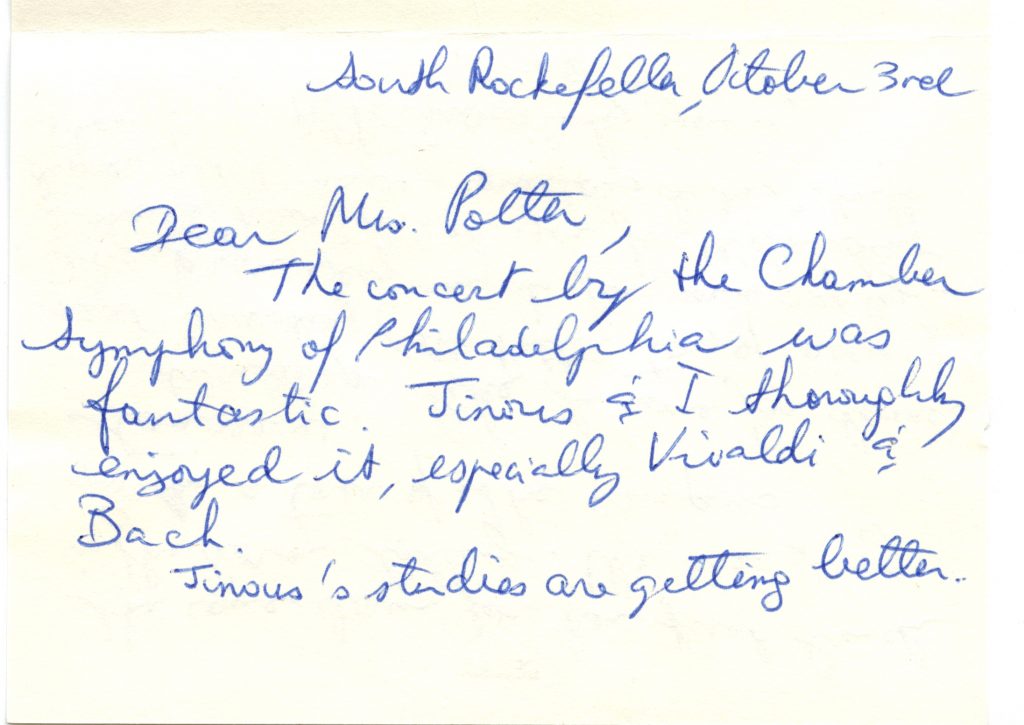 South Rockefella, October 3rd
Dear Mrs. Potter,
The concert by the Chamber
Symphony of Philadelphia was
fantastic. Jinous & I thoroughly
enjoyed it, especially Vivaldi &
Bach.
Jinous's studies are getting better.